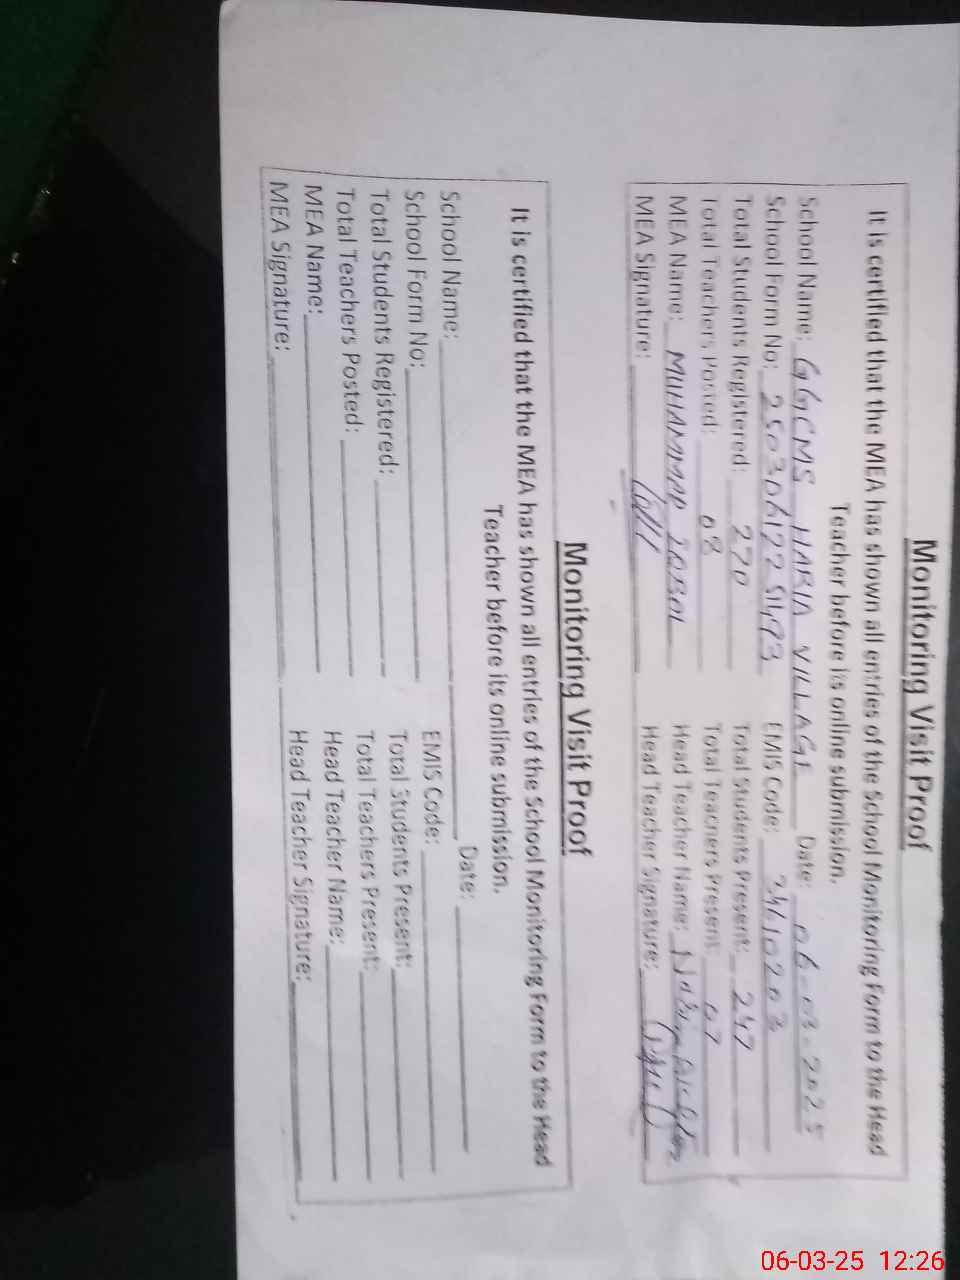 Monitoring Visit Proof
It is certified that the MEA has shown all entries of the School Monitoring Form to the Head
Teacher before its online submission.
School Name: GGCMS HARIA VILLAGE Date: 06-03-2025
School Form No: EMIS Code: 34610203
Total Students Registered: 270 Total Students Present: 247
Total Teachers Posted: 08 Total Teachers Present: 07
MEA Name: MUHAMMAD IQBAL Head Teacher Name:
MEA Signature: Head Teacher Signature:
Monitoring Visit Proof
It is certified that the MEA has shown all entries of the School Monitoring Form to the Head
Teacher before its online submission.
School Name: Date:
School Form No: EMIS Code:
Total Students Registered: Total Students Present:
Total Teachers Posted: Total Teachers Present:
MEA Name: Head Teacher Name:
MEA Signature: Head Teacher Signature:
06-03-25 12:26